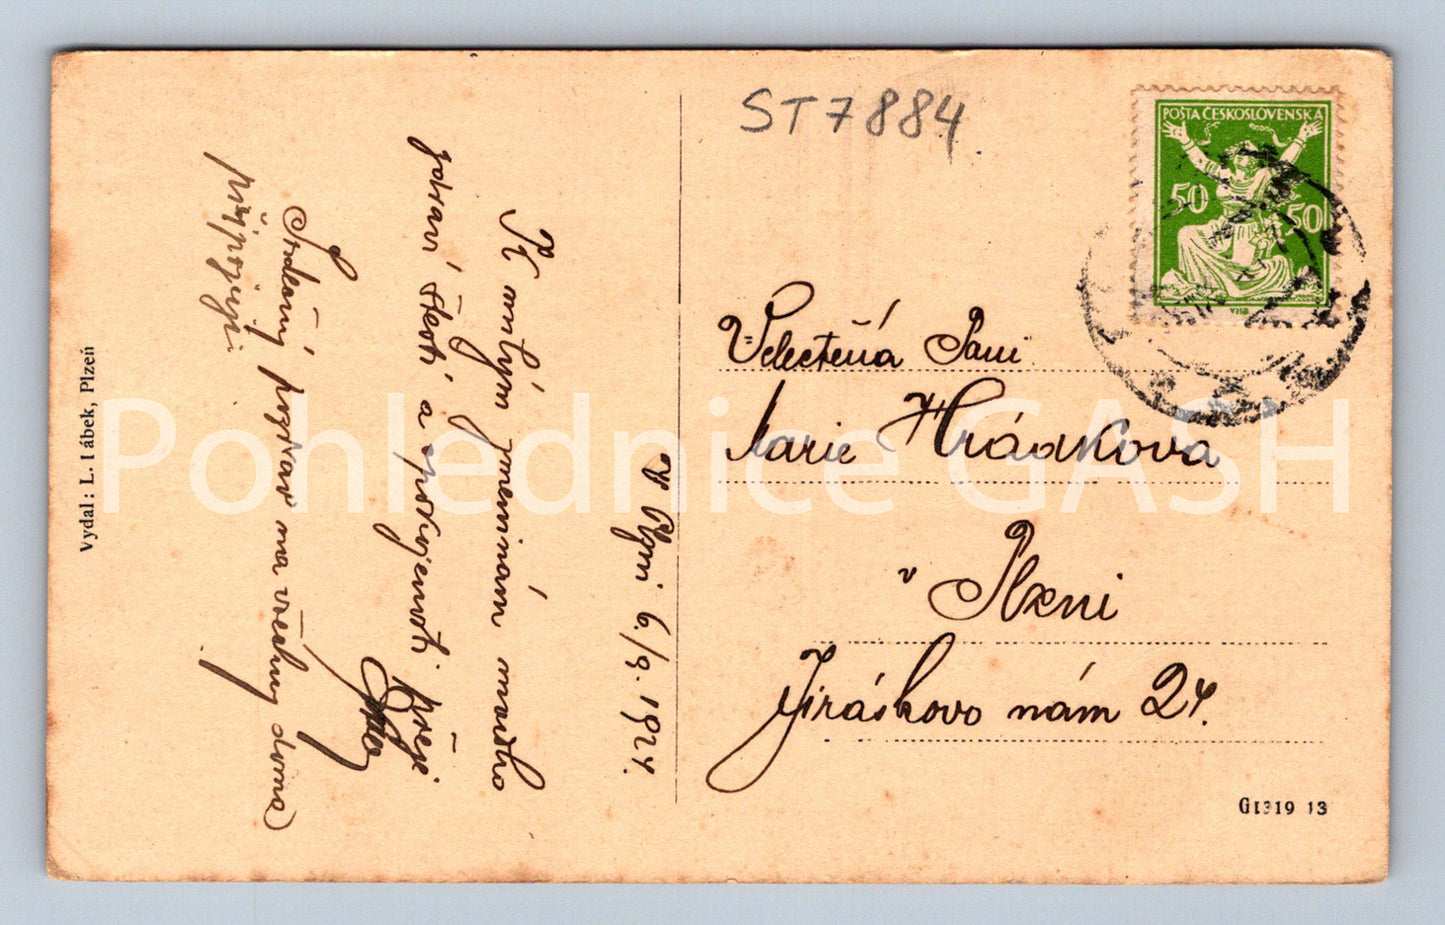 ST7884
POŠTA ČESKOSLOVENSKÁ
50 50
V Plzni 6./9. 1924.
K milým jmeninám mnoho
zdraví štěstí a spokojenosti přeje
Srdečný pozdrav na všechny doma
připojuji
Velectěná Paní
Marie Hrádkova
v Plzni
Jiráskovo nám 24.
Vydal: L. Lábek, Plzeň
G1319 13
Pohlednice GASH